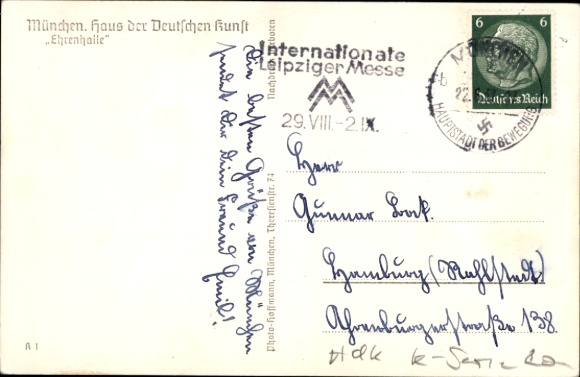 München. Haus der Deutschen Kunst
„Ehrenhalle"
Die besten Grüße von München
sendet Dir Dein Freund
Nachdruck verboten
Photo-Hoffmann, München, Theresienstr. 74
Internationale
Leipziger Messe
29.VIII.-2.IX.
6 6
Deutsches Reich
MÜNCHEN
HAUPTSTADT DER BEWEGUNG
Herrn
Gunnar Bock.
Hamburg (Rahlstedt)
Ahrensburgerstraße 138.
Hdk
A 1